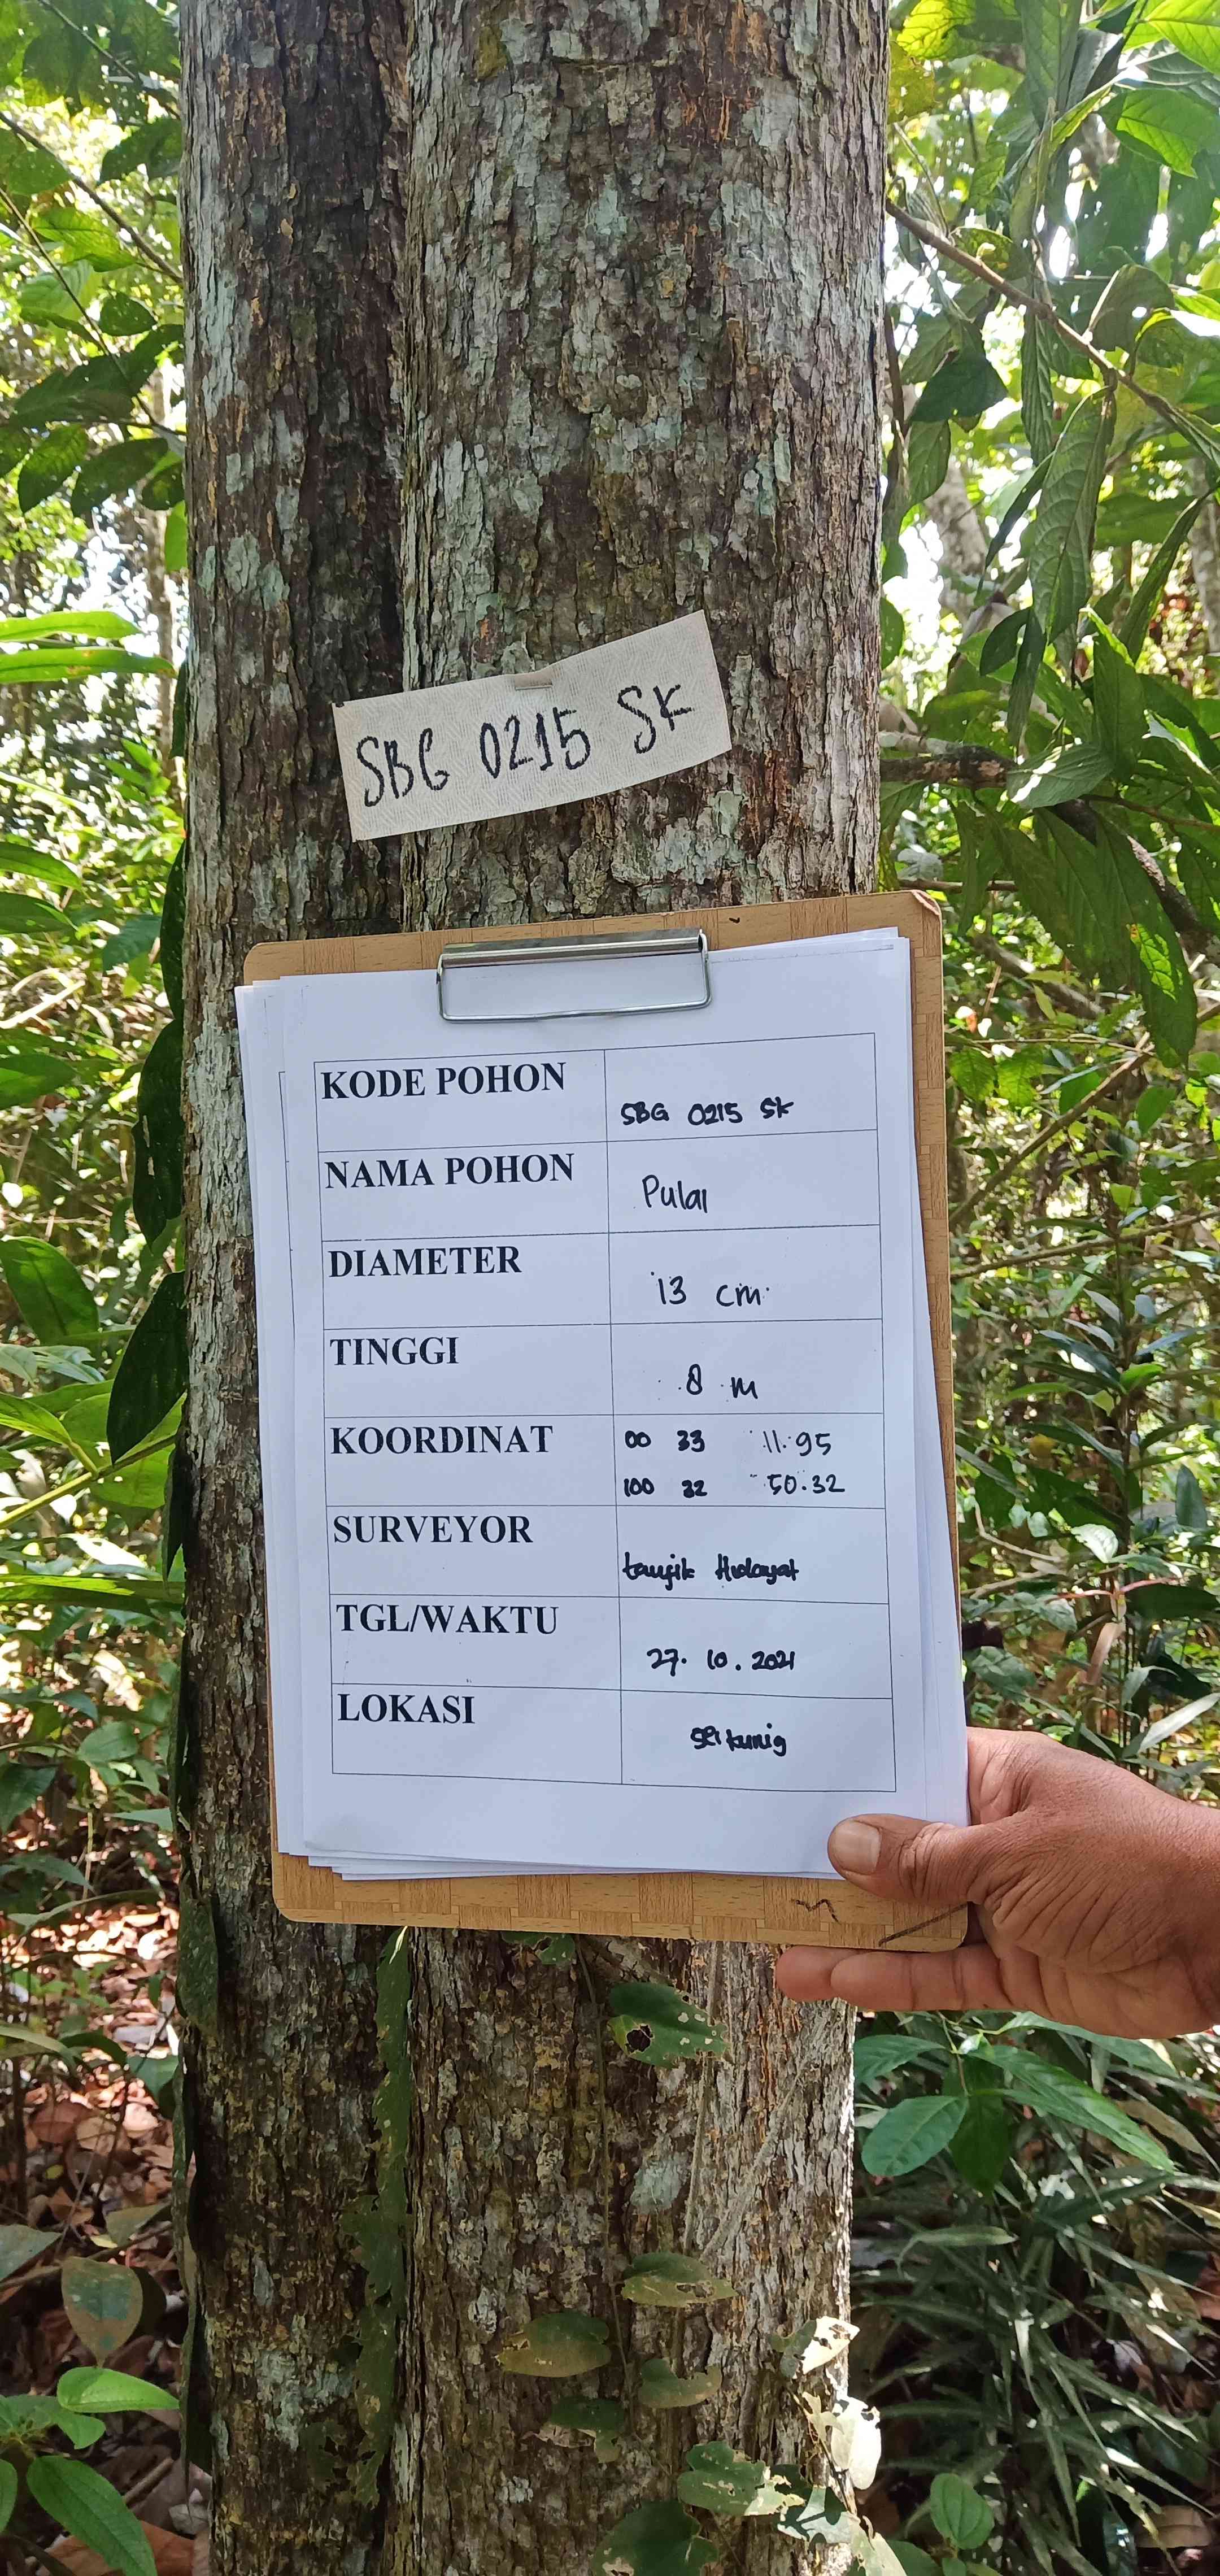 SBG 0215 SK
KODE POHON
SBG 0215 SK
NAMA POHON
Pulai
DIAMETER
13 cm
TINGGI
8 m
KOORDINAT
00 33 11.95
100 32 50.32
SURVEYOR
taufik Hidayat
TGL/WAKTU
27. 10. 2021
LOKASI